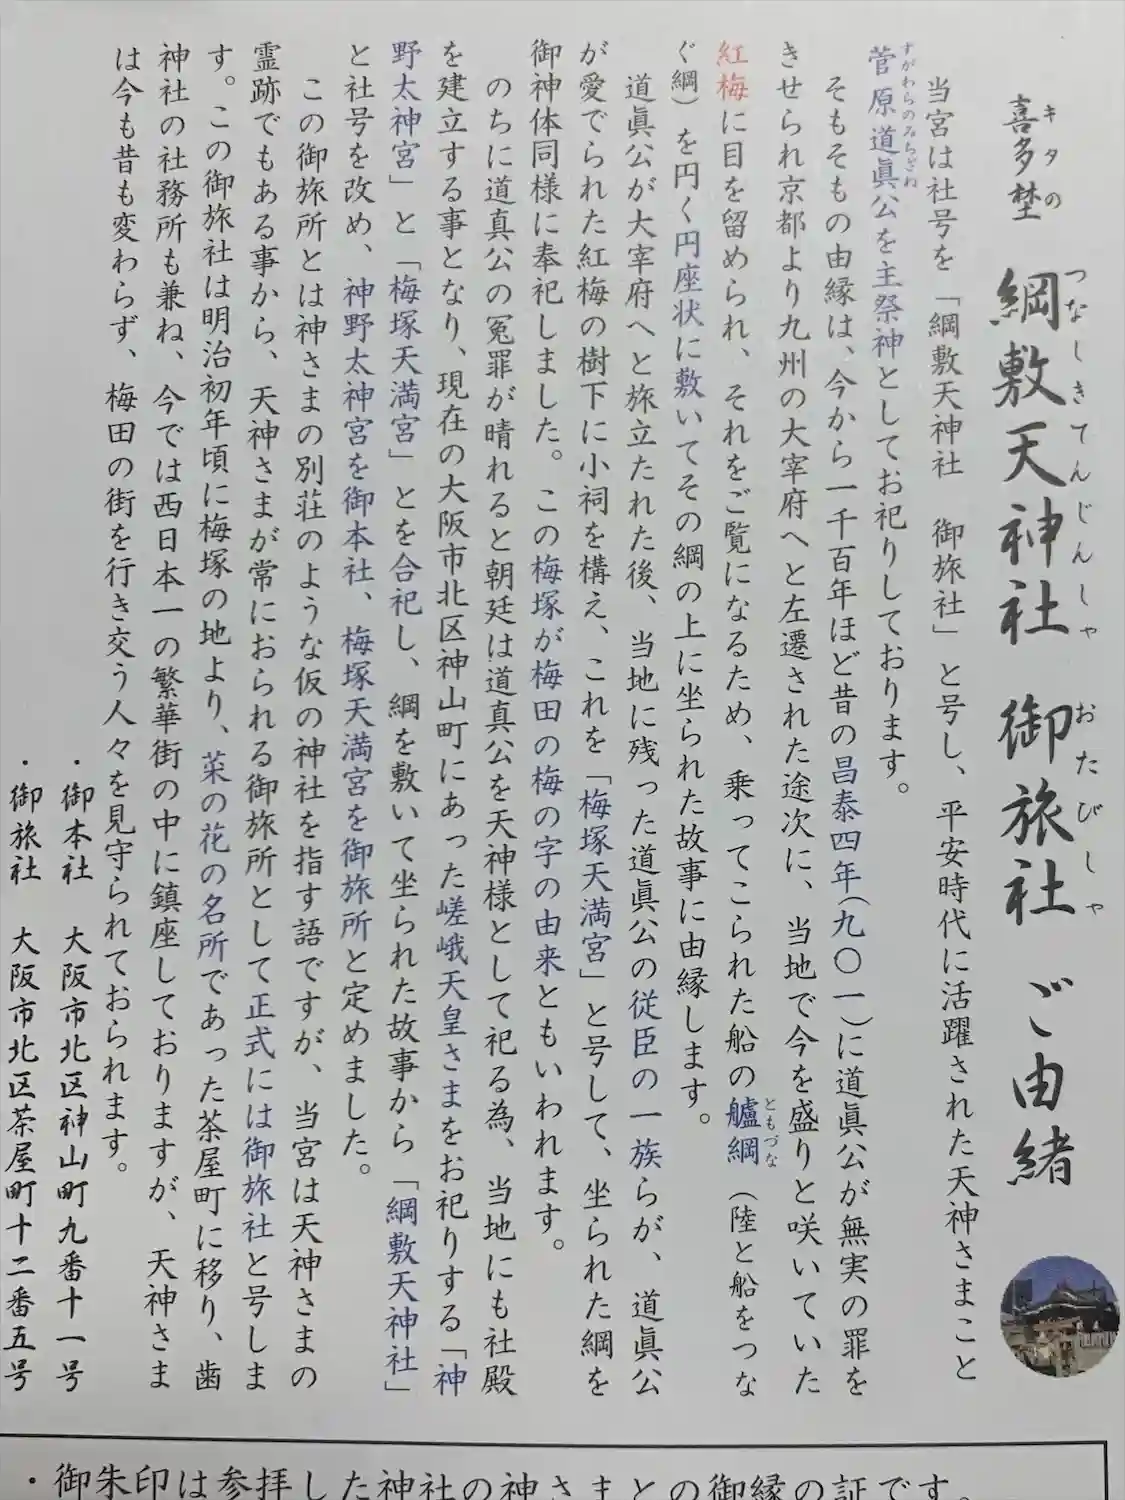 喜多埜 綱敷天神社 御旅社 ご由緒
キタの つなしきてんじんしゃ おたびしゃ
当宮は社号を「綱敷天神社 御旅社」と号し、平安時代に活躍された天神さまこと
菅原道眞公を主祭神としてお祀りしております。
すがわらのみちざね
そもそもの由縁は、今から一千百年ほど昔の昌泰四年(九〇一)に道眞公が無実の罪を
きせられ京都より九州の大宰府へと左遷された途次に、当地で今を盛りと咲いていた
紅梅に目を留められ、それをご覧になるため、乗ってこられた船の艫綱(陸と船をつな
ともづな
ぐ綱)を円く円座状に敷いてその綱の上に坐られた故事に由縁します。
道眞公が大宰府へと旅立たれた後、当地に残った道眞公の従臣の一族らが、道眞公
が愛でられた紅梅の樹下に小祠を構え、これを「梅塚天満宮」と号して、坐られた綱を
御神体同様に奉祀しました。この梅塚が梅田の梅の字の由来ともいわれます。
のちに道真公の冤罪が晴れると朝廷は道真公を天神様として祀る為、当地にも社殿
を建立する事となり、現在の大阪市北区神山町にあった嵯峨天皇さまをお祀りする「神
野太神宮」と「梅塚天満宮」とを合祀し、綱を敷いて坐られた故事から「綱敷天神社」
と社号を改め、神野太神宮を御本社、梅塚天満宮を御旅所と定めました。
この御旅所とは神さまの別荘のような仮の神社を指す語ですが、当宮は天神さまの
霊跡でもある事から、天神さまが常におられる御旅所として正式には御旅社と号しま
す。この御旅社は明治初年頃に梅塚の地より、菜の花の名所であった茶屋町に移り、歯
神社の社務所も兼ね、今では西日本一の繁華街の中に鎮座しておりますが、天神さま
は今も昔も変わらず、梅田の街を行き交う人々を見守られております。
・御本社 大阪市北区神山町九番十一号
・御旅社 大阪市北区茶屋町十二番五号
・御朱印は参拝した神社の神さまとの御縁の証です。